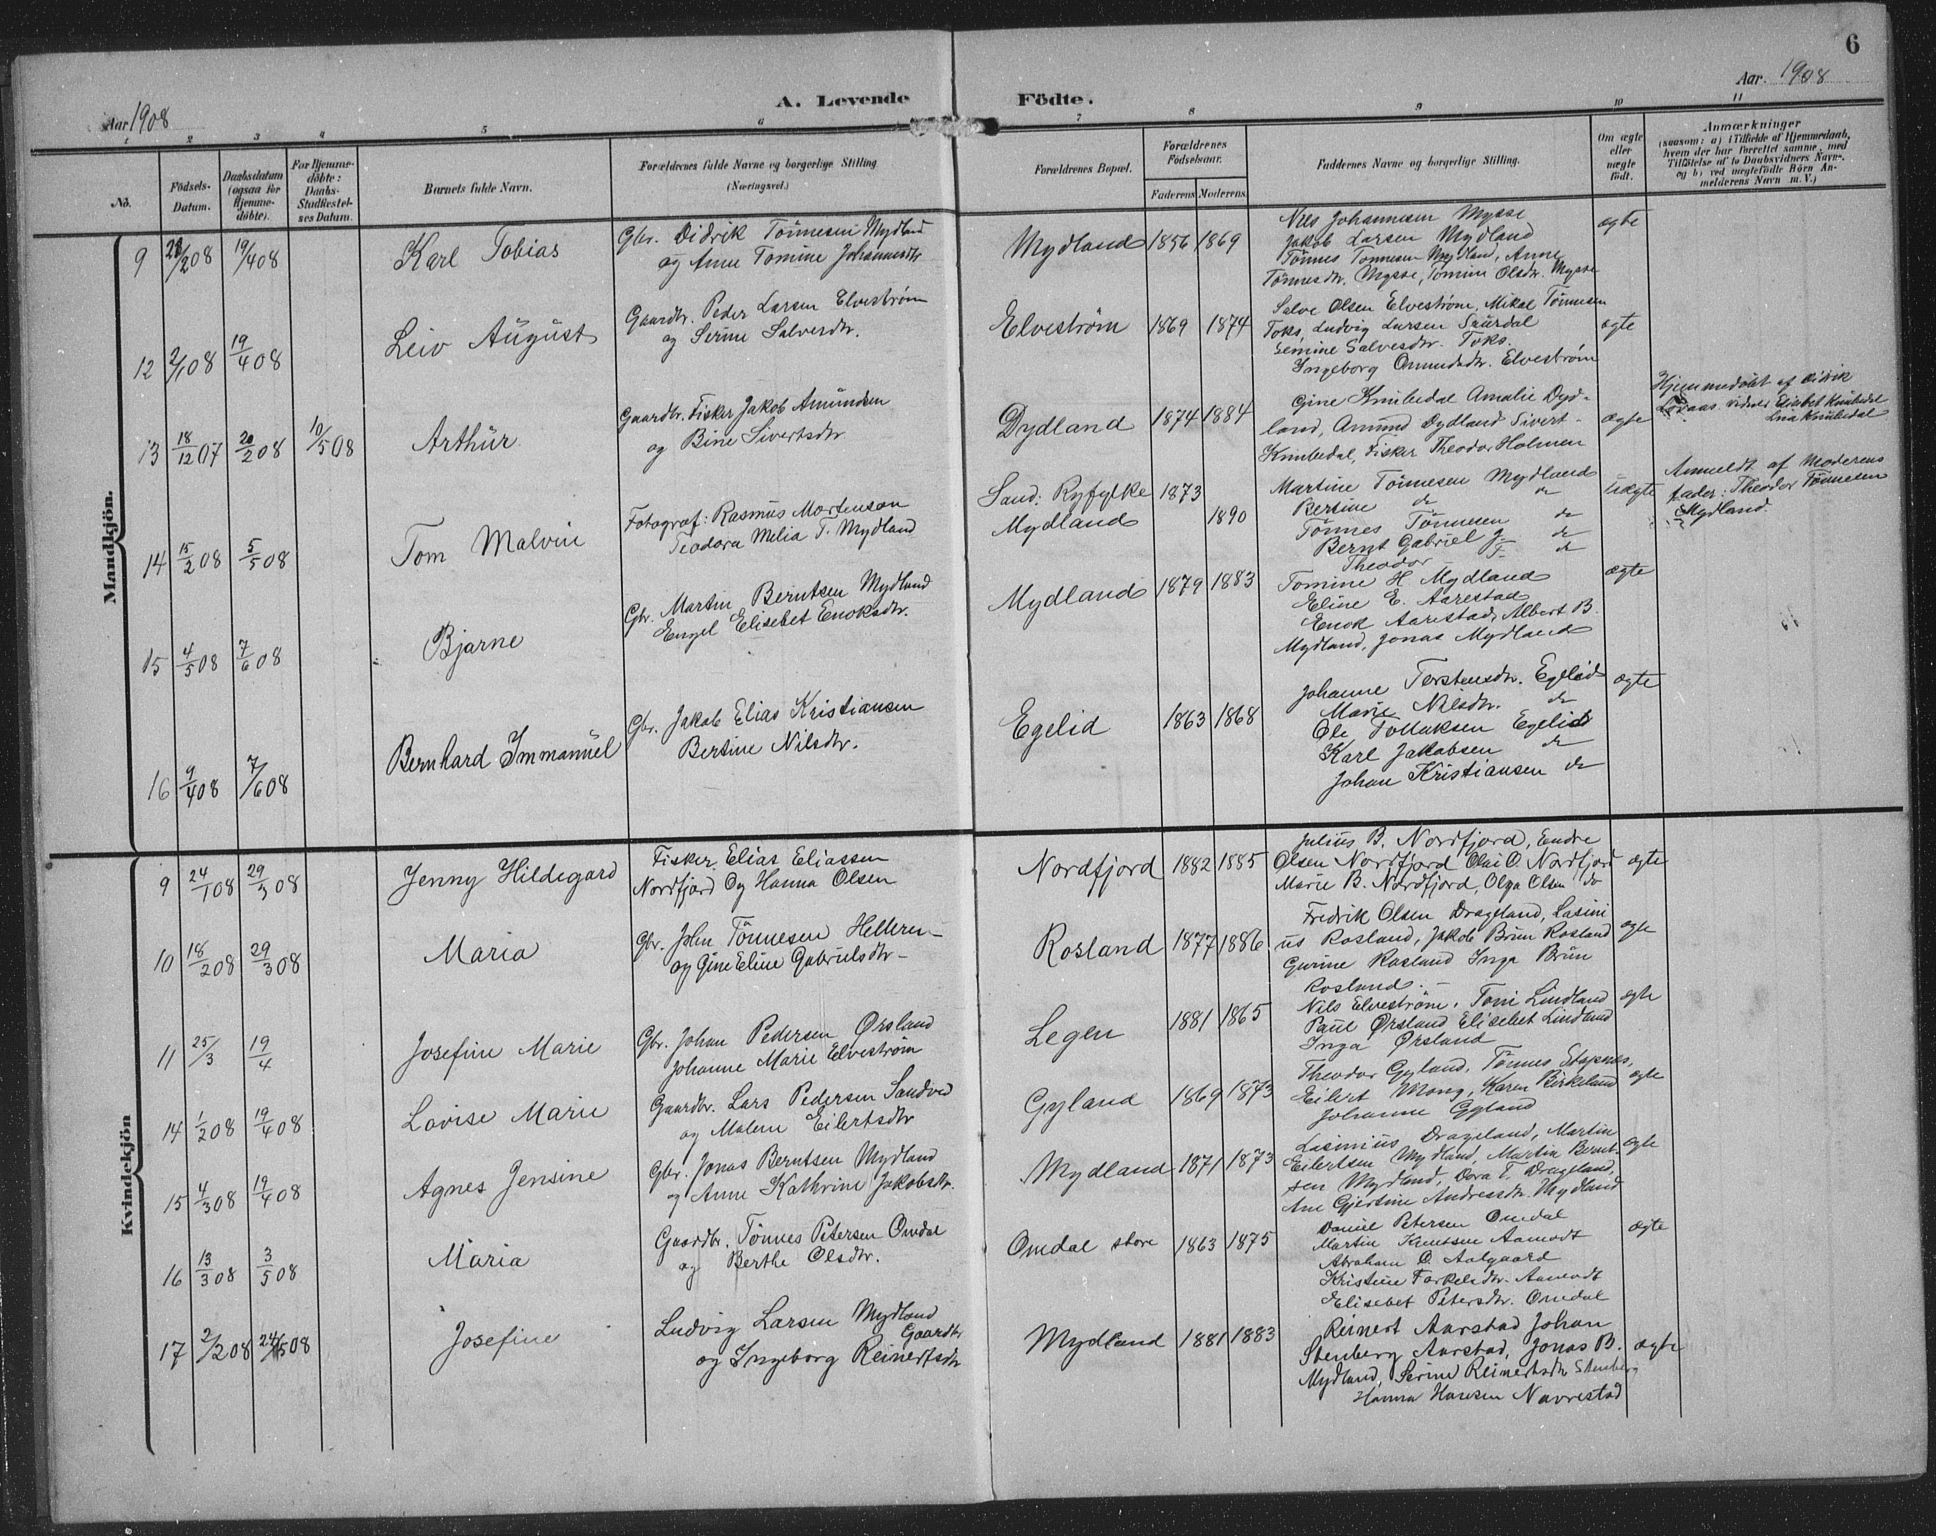 6
Aar 1908
A. Levende
Födte.
Aar 1908
1
2
3
4
5
6
7
8
9
10
11
No.
Födsels-
Datum.
Daabsdatum
(ogsaa for
Hjemme-
döbte).
For Hjemme-
döbte:
Daabs-
Stadfæstel-
ses Datum.
Barnets fulde Navn.
Forældrenes fulde Navne og borgerlige Stilling
(Næringsvei.)
Forældrenes Bopæl.
Forældrenes
Födselsaar.
Faderens
Moderens.
Faddernes Navne og borgerlige Stilling.
Om ægte
eller
uægte
födt.
Anmærkninger
(saasom: a) i Tilfælde af Hjemmedaab,
hvem der har forrettet samme, med
Tilföielse af to Daabsvidners Navn,
og b) ved uægtefödte Börn An-
melderens Navn m. V.)
Mandkjön.
9
/208
19/408
Karl Tobias
Gbr. Didrik Tönnesen Mydland
og Anne Tomine Johannesdtr
Mydland
1856
1869
Nils Johannesen Mysse
Jakob Larsen Mydland
Tönnes Tönnesen Mydland, Anne
Tönnesdtr. Mysse, Tomine Olsdtr. Mysse
ægte
12
2/108
19/408
Leiv August
Gaardbr. Peder Larsen Elveström
og Serine Salvesdtr.
Elveström
1869
1874
Salve Olsen Elveström, Mikal Tönnesen
Toks, Ludvig Larsen Saurdal
Semine Salvesdtr. Toks.
Ingeborg Omundsdtr. Elveström
ægte
13
18/12 07
20/2 08
10/5 08
Arthur
Gaardbr. Fisker Jakob Amundsen
og Bine Sivertsdtr
Dydland
1874
1884
Gine Knibedal Amalie Dyd-
land, Amund Dydland Sivert-
Knibedal, Fisker Theodor Holmen
ægte
Hjemmedöbt af Didrik
vidner Elisabet Knibedal
Lina Knibedal
14
15/2 08
5/5 08
Tom Malvin
Fotograf: Rasmus Mortensen
Teodora Melia T. Mydland
Sand: Ryfylke
Mydland
1873
1890
Martine Tönnesen Mydland
Bertine do do
Tönnes Tönnesen do
Bernt Gabriel J. do
Theodor T. do
uægte
Anmeldt af Moderens
fader: Theodor Tönnesen
Mydland.
15
4/5 08
7/6 08
Bjarne
Gbr. Martin Berntsen Mydland
Engel Elisebet Enoksdtr.
Mydland
1879
1883
Tomine H Mydland
Eline E. Aarestad
Enok Aarestad, Albert B.
Mydland, Jonas Mydland
ægte
16
9/4 08
7/6 08
Bernhard Immanuel
Gbr. Jakob Elias Kristiansen
Bertine Nilsdtr.
Egelid
1863
1868
Johanne Torstensdtr. Egelid
Marie Nilsdtr. do
Ole Tollaksen Egelid
Karl Jakobsen do
Johan Kristiansen do
ægte
Kvindekjön
9
24/1 08
29/3 08
Jenny Hildegard
Fisker Elias Eliassen
Nordfjord Og Hanna Olsen
Nordfjord
1882
1885
Julius B. Nordfjord, Endre
Olsen Nordfjord Olai O. Nordfjord
Marie B. Nordfjord, Olga Olsen do
ægte
10
18/2 08
29/3 08
Maria
Gbr. John Tönnesen Helleren-
og Gine Eline Gabrielsdtr-
Rosland
1877
1886
Fredrik Olsen Drageland, Lasini
us Rosland, Jakob Brün Rosland
Gurine Rosland Inga Brün
Rosland.
ægte
11
25/3
19/4
Josefine Marie
Gbr. Johan Pedersen Ørsland
Johanne Marie Elveström
Legen
1881
1865
Nils Elveström, Toni Lindland
Paul Ørsland Elisebet Lindland
Inga Ørsland
ægte
14
1/2 08
19/4 08
Lovise Marie
Gaardbr. Lars Pedersen Sandved
og Malene Eilertsdtr
Gyland
1869
1873
Theodor Gyland, Tönnes Stapnes,
Eilert Mong, Karen Birkeland
Johanne Gyland
ægte
15
4/3 08
19/4 08
Agnes Jensine
Gbr. Jonas Berntsen Mydland
og Anne Kathrine Jakobsdtr.
Mydland
1871
1873
Lasinius Drageland, Martin
Eilertsen Mydland, Martin Bernt-
sen Mydland, Dora T. Drageland,
Ane Gjertine Andreasdtr. Mydland
ægte
16
13/3 08
3/5 08
Maria
Gaardbr. Tönnes Petersen Omdal
og Berthe Olsdtr.
Omdal store
1863
1875
Daniel Petersen Omdal
Martin Knutsen Aamodt
Abraham D. Aalgaard
Kristine Torkelsdtr. Aamodt
Elisebet Petersdtr. Omdal
ægte
17
2/2 08
24/5 08
Josefine
Ludvig Larsen Mydland
Gaardbr
og Ingeborg Reinertsdtr
Mydland
1881
1883
Reinert Aarstad Johan
Stenberg Aarstad, Jonas B.
Mydland, Serine Reinertsdtr Stenberg
Hanna Hansen Navrestad
ægte